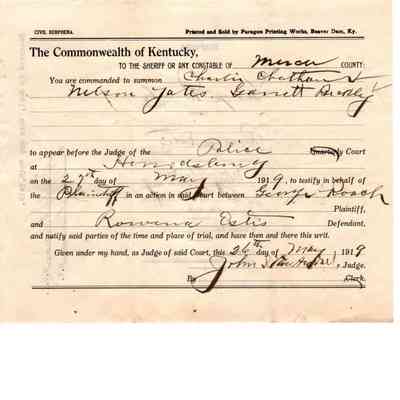 CIVIL SUBPOENA. Printed and Sold by Paragon Printing Works, Beaver Dam, Ky.
The Commonwealth of Kentucky,
TO THE SHERIFF OR ANY CONSTABLE OF Mercer COUNTY:
You are commanded to summon Charlie Chatham
Nelson Yates, Garrett
to appear before the Judge of the Police Quarterly Court
at Harrodsburg
on the 27th day of May 1919, to testify in behalf of
the Plaintiff in an action in said Court between George Roach
Plaintiff,
and Rowena Estis Defendant,
and notify said parties of the time and place of trial, and have then and there this writ.
Given under my hand, as Judge of said Court, this 26th day of May 1919
John , Judge.
By Clerk.